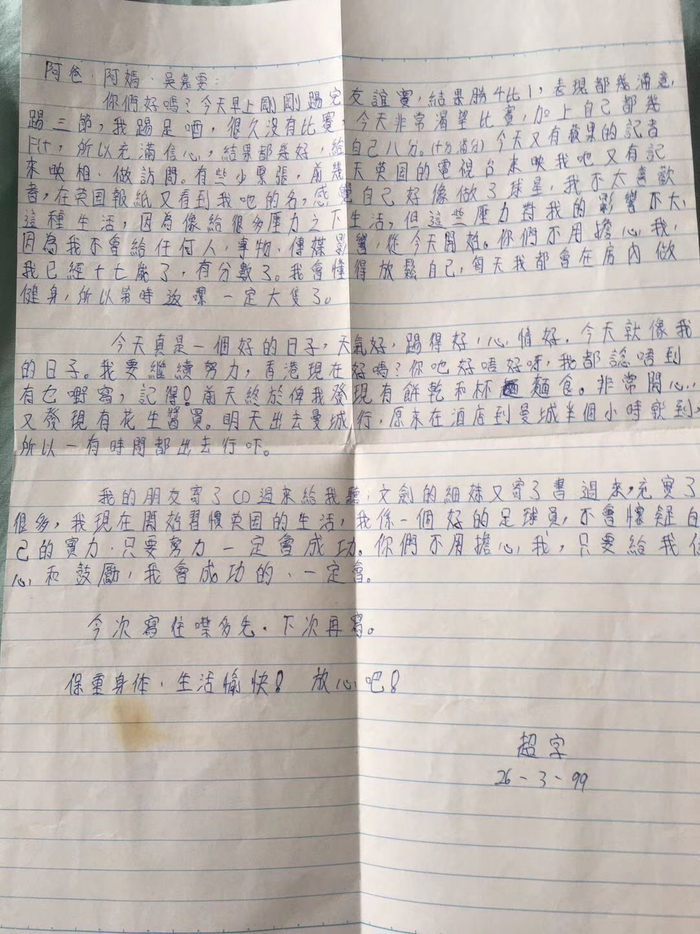 阿爸、阿媽、吳嘉雯:
你們好嗎?今天早上剛剛踢完友誼賽,結果勝4比1,表現都幾滿意,
踢三節,我踢足晒,很久沒有比賽,今天非常渴望比賽,加上自己都幾
Fit,所以充滿信心,結果都幾好,給自己八分。(十分滿分)今天又有蘋果的記者
來映相、做訪問。有些少緊張,前幾天英国的電視台來映我吔又有記
者,在英国報紙又看到我吔的名,感覺自己好像做了球星,我不太喜歡
這種生活,因為像給很多壓力之下生活,但這些壓力對我的影響不大,
因為我不會給任何人、事物、傳媒影響,從今天開始。你們不用擔心我,
我已經十七歲了,有分數了。我會懂得放鬆自己,每天我都會在房內做
健身,所以第時返嚟一定大隻了。
今天真是一個好的日子,天氣好,踢得好,心情好。今天就像我
的日子。我要繼續努力,香港現在好嗎?你吔好唔好呀,我都諗唔到
有乜嘢寫,記得!前天終於俾我發現有餅乾和杯麵食。非常開心,
又發現有花生醬買。明天出去曼城行,原來在酒店到曼城半個小時就到,
所以一有時間都出去行吓。
我的朋友寄了CD過來給我聽,文劍的細妹又寄了書過來,充實了
很多,我現在開始習慣英国的生活,我係一個好的足球員,不會懷疑自
己的實力,只要努力一定會成功。你們不用擔心我,只要給我信
心和鼓勵,我會成功的,一定會。
今次寫住咁多先,下次再寫。
保重身体,生活愉快! 放心吧!
超字
26-3-99